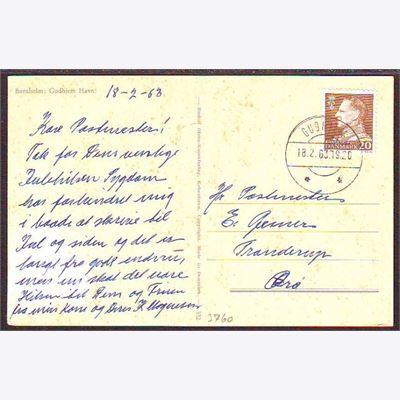 Bornholm: Gudhjem Havn.
18-2-63
Kære Postmester!
Tak for Deres venlige
Julehilsen Sygdom
har forhindret mig
i baade at skrive til
Jul og siden og det er
langt fra godt endnu,
men nu skal det være
Hilsen til Dem og Fruen
fra min Kone og Deres K. Mogensen
GUDHJEM
18.2.63.19.20
DANMARK
20
Hr Postmester
E.
Tranderup
Ærø
3760